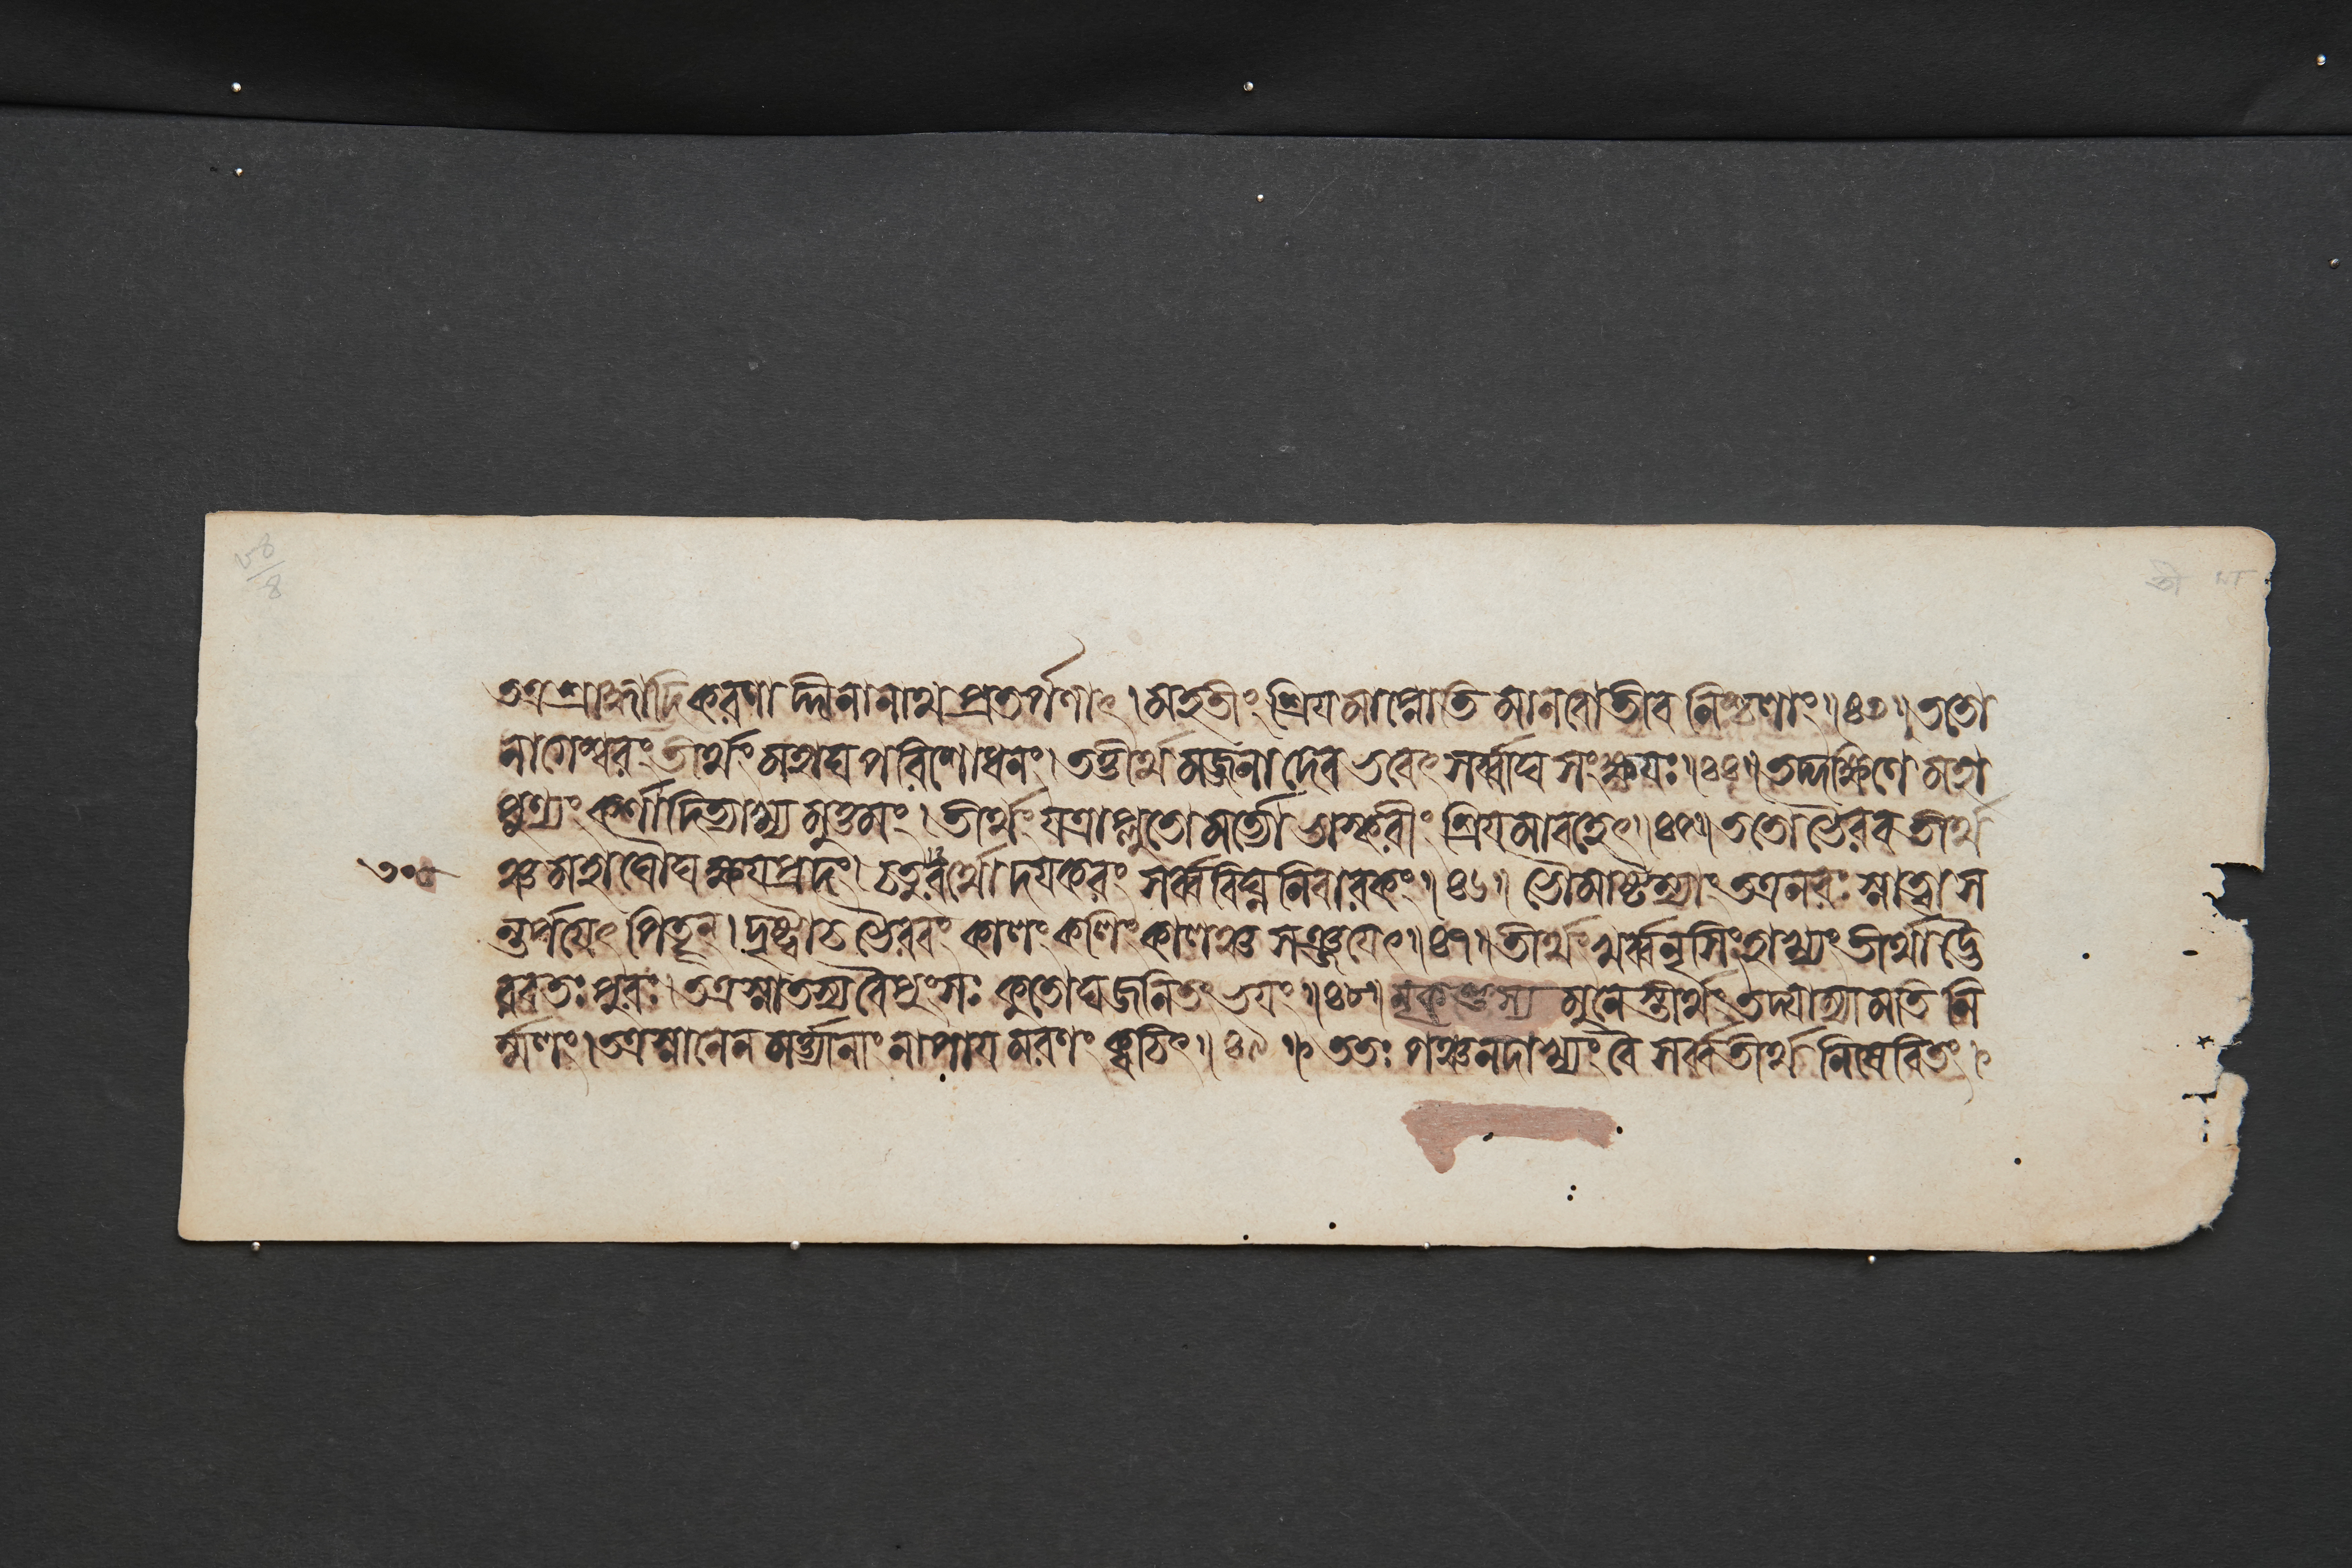 তত্রশ্রাদ্ধাদিকরণাদ্দীনানাথপ্রতর্পণাৎ।মহতীং শ্রিযমাপ্নোতি মানবোতীব নিশ্চলাং॥৪৩॥ততো
নাগেশ্বরং তীর্থং মহাঘপরিশোধনং।তত্তীর্থমজ্জনাদেব ভবেৎ সর্ব্বাঘসংক্ষযঃ॥৪৪॥তদ্দক্ষিণে মহা
পুণ্যং কর্ণাদিত্যাখ্যমুত্তমং।তীর্থং যত্রাপ্লুতো মর্ত্যো ভাস্করীং শ্রিযমাবহেৎ॥৪৫॥ততো ভৈরবতীর্থ
ঞ্চ মহাঘৌঘক্ষযপ্রদং।চতুরর্থোদযকরং সর্ব্ববিঘ্ননিবারকং॥৪৬॥ভৌমাষ্টম্যাং তত্রনরঃ স্নাত্বা স
ন্তর্পযেৎ পিতৄন্।দৃষ্ট্বা চ ভৈরবং কালং কলিং কালঞ্চ সঞ্জযেৎ॥৪৭॥তীর্থং খর্ব্বনৃসিংহাখ্যং তীর্থাদ্ভৈ
রবতঃ পুরঃ।তত্রস্নাতস্য বৈ পুংসঃ কুতোঘজনিতং ভযং॥৪৮॥মৃকণ্ডুস্য মুনেস্তীর্থং তদ্যাম্যামতিনি
র্ম্মলং।তত্রস্নানেন মর্ত্ত্যানাং নাপাযমরণং ক্বচিৎ॥৪৯॥ততঃ পঞ্চনদাখ্যং বৈ সর্ব্বতীর্থনিষেবিতং।